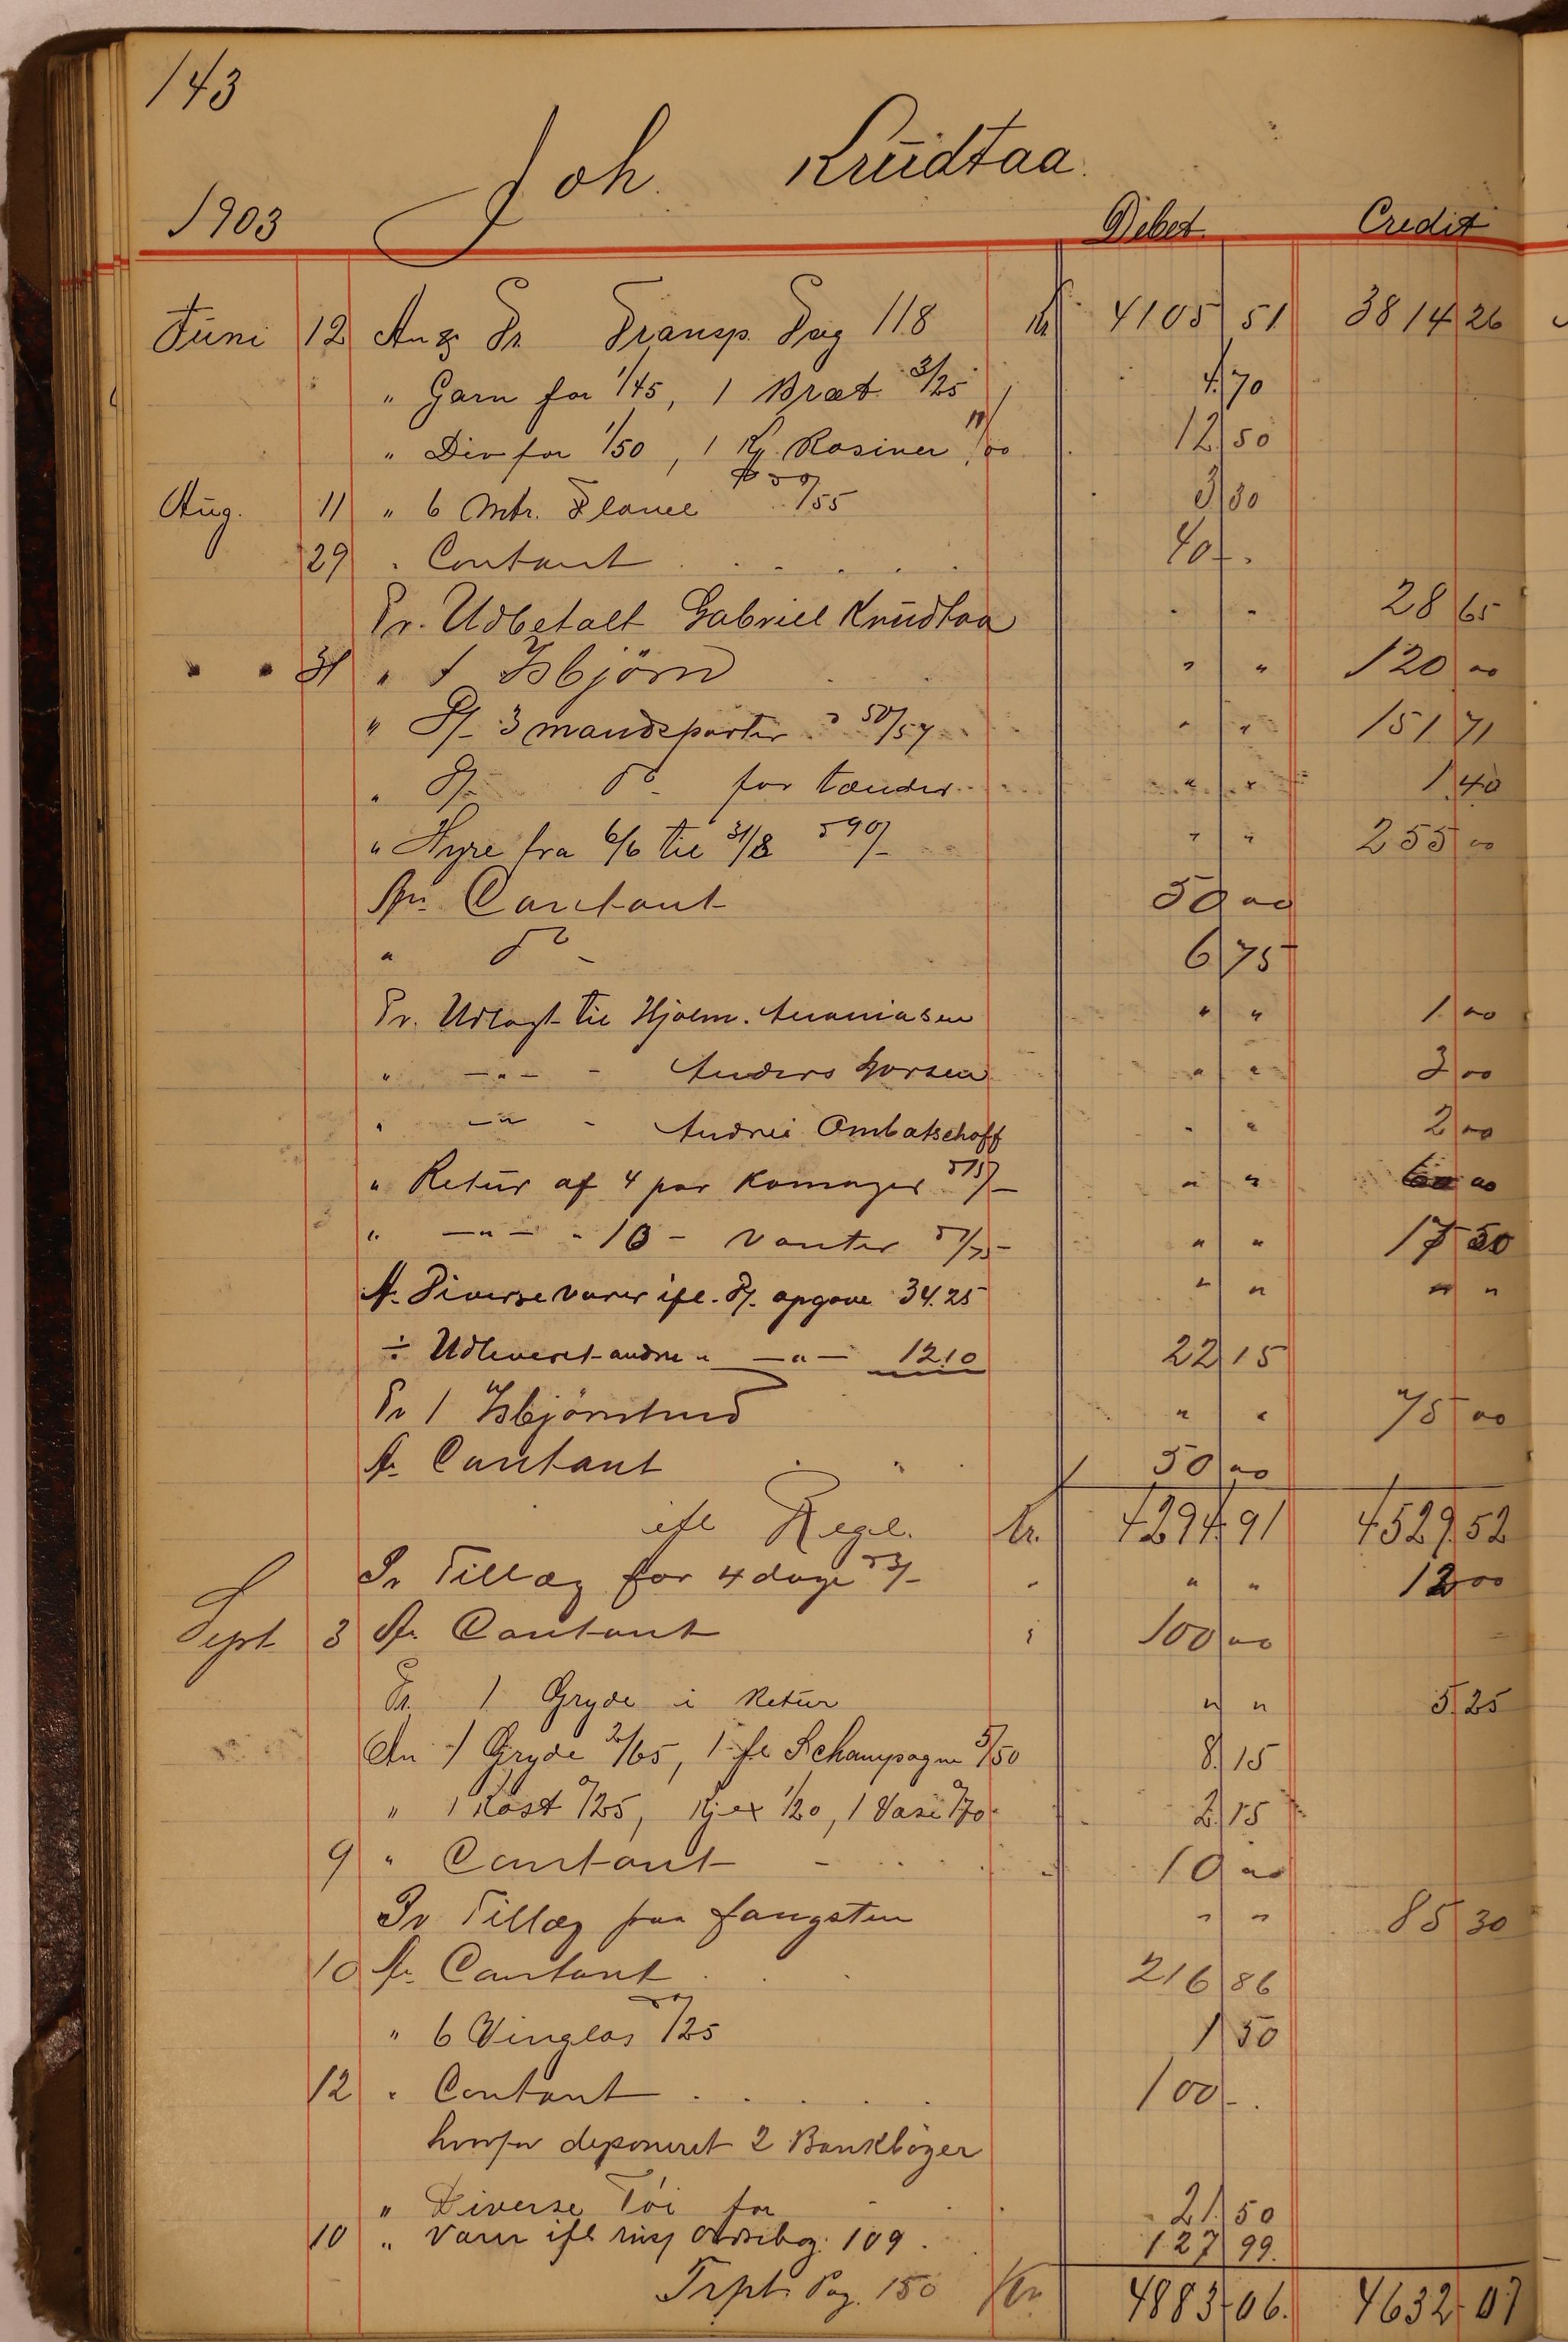 143
Joh. Krüdtaa.
1903 Debet Credit
Juni 12 An & Pr. Transp. Pag 118 Kr 4105 51 3814 26
" Garn for 1/45, 1 Bræt 3/25 4.70
" Div for 1/50, 1 Kg. Rosiner 11/00 12 50
Aug. 11 " 6 Mtr. Flanel /55 3 30
29 " Contant . . . . . 40 - .
Pr. Udbetalt Gabriel Krüdtaa " " 28 65
" " 31 " 1 Isbjörn " " 120 00
" P/- 3 mandsparter à 50/57 " " 151 71
" P/- do - for tænder " " 1.40
" Hyre fra 6/6 til 31/8 à 90/- " " 255 00
An Contant 50 00
" do - 6 75
Pr. Udlagt til Hjalm. Ananiasen " " 1 00
" -"- - Anders Larsen " " 3 00
" -"- - Andrei Ombatschoff " " 2 00
" Retür af 4 par Komager à 15/- " " 60 00
" -"- " 10 - Vanter à 1/75 " " 17 50
An Diverse varer ifl. P/. opgave 34.25 " " " "
÷ Udleveret andre " -"- 12.10 22 15
Pr 1 Isbjörnhud " " 75 00
An Contant " 50 00
ifl Regl. Kr. 4294.91 4529.52
Pr Tillæg for 4 dage à 3/- " " " 12 00
Sept 3 An Contant " 100 00
Pr. 1 Gryde i Retür " " 5.25
An 1 Gryde 2/65, 1 fl Schampagne 5/50 8.15
" 1 Kost 0/25, Kjex 1/20, 1 Vase 0/70 2.15
9 " Contant - . . . 10 00
Pr Tillæg paa fangsten " " 85 30
10 An Contant . . 216 86
" 6 Vinglas /25 1 50
12 " Contant . . . . . 100 - .
hvorfor deponeret 2 Bankböger
" Diverse Töi for - . . 21.50
10 " Varer ifl Ordrebog. 109 . 127 99.
Trpt. Pag. 150 Kr 4883-06. 4632-07